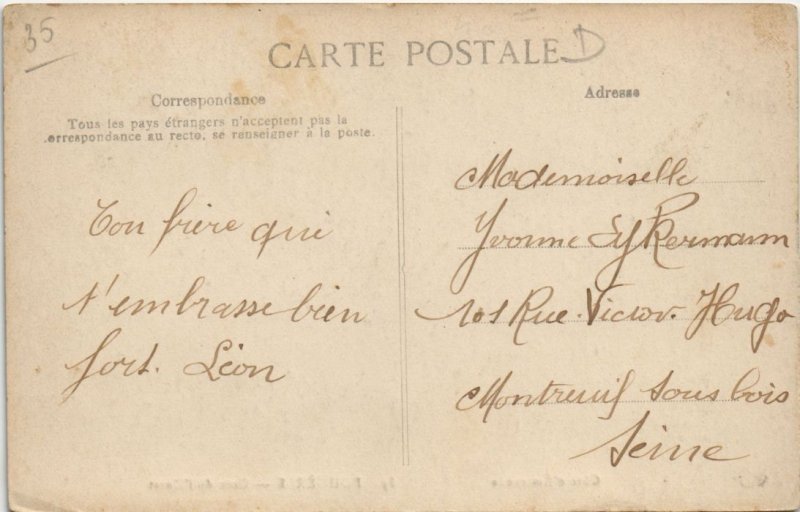 35
CARTE POSTALE D
Correspondance
Tous les pays étrangers n'acceptent pas la
orrespondance au recto, se renseigner à la poste.
Ton frère qui
t'embrasse bien
fort. Léon
Adresse
Mademoiselle
Yvonne Eykermann
101 Rue. Victor. Hugo
Montreuil sous bois
Seine